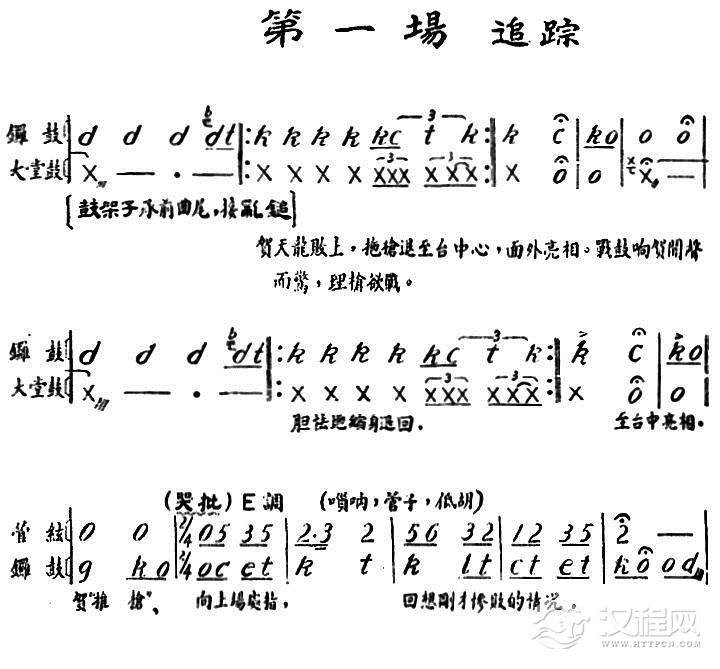 第一場 追踪
鑼鼓 d d d dt k k k k kc t k k c ko o o
大堂鼓 X — · — X X X X XXX XXX X o o X —
鼓架子承前曲尾，接亂鎚
贺天龍敗上，拖槍退至台中心，面外亮相。戰鼓响贺聞聲
而驚，理槍欲戰。
鑼鼓 d d d dt k k k k kc t k k c ko
大堂鼓 X — · — X X X X XXX XXX X o o o
胆怯地縮身退回. 至台中亮相.
(哭批) E調 (嗩呐，管子，低胡)
管絃 0 0 2/4 05 35 2·3 2 56 32 12 35 2 —
鑼鼓 g ko 2/4 oc et k t k lt ct et k o od
贺"推槍"、 向上場處指， 回想剛才慘敗的情况。
汉程网
WWW.HTTPCN.COM